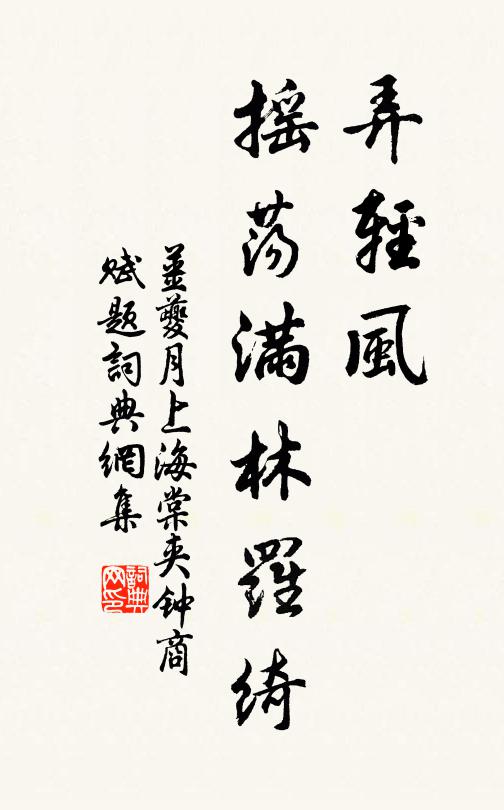 弄輕風
摇蕩满林羅綺
姜夔月上海棠夹钟商
赋题詞典網集
詞典
网印